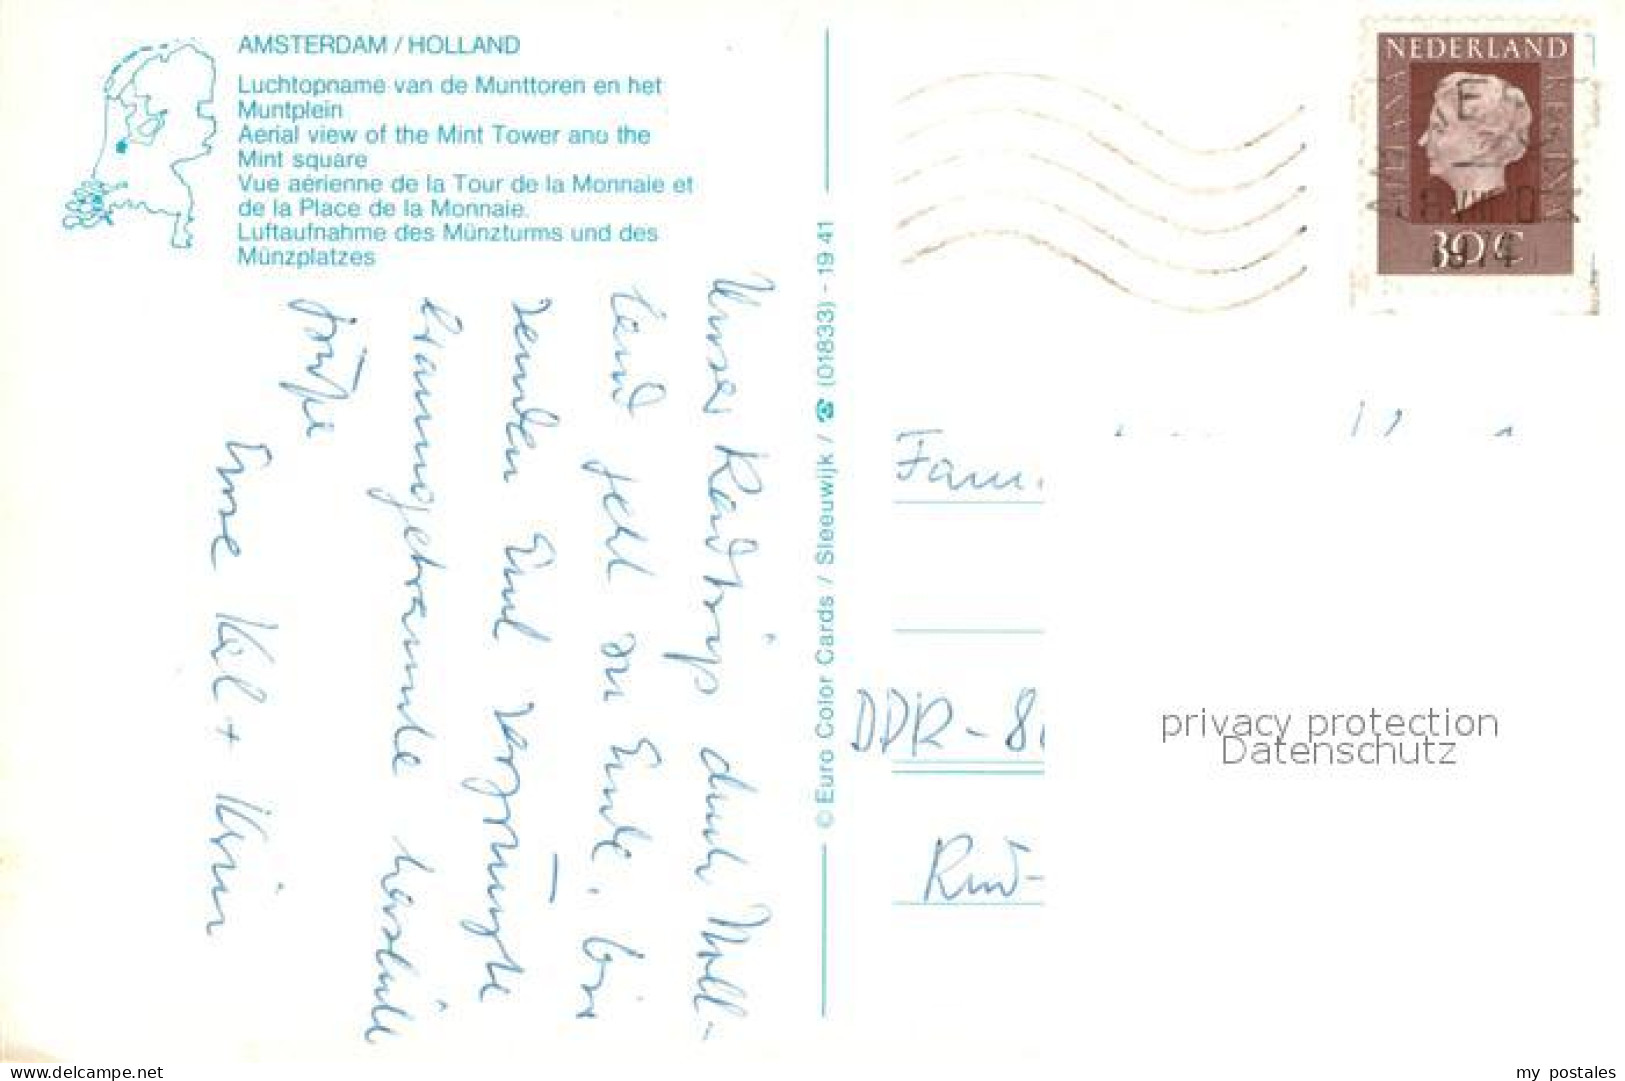 AMSTERDAM / HOLLAND
Luchtopname van de Munttoren en het
Muntplein
Aerial view of the Mint Tower and the
Mint square
Vue aérienne de la Tour de la Monnaie et
de la Place de la Monnaie.
Luftaufnahme des Münzturms und des
Münzplatzes
Unser Radtrip durch Holl-
land geht zu Ende. Wir
senden Euch vergnügte
braungebrannte herzliche
Grüße
Eure
© Euro Color Cards / Sleeuwijk / ☎ (01833) - 19 41
NEDERLAND
30 c
1974
Fam.
DDR - 8
Rud-
privacy protection
Datenschutz
www.delcampe.net
my_postales